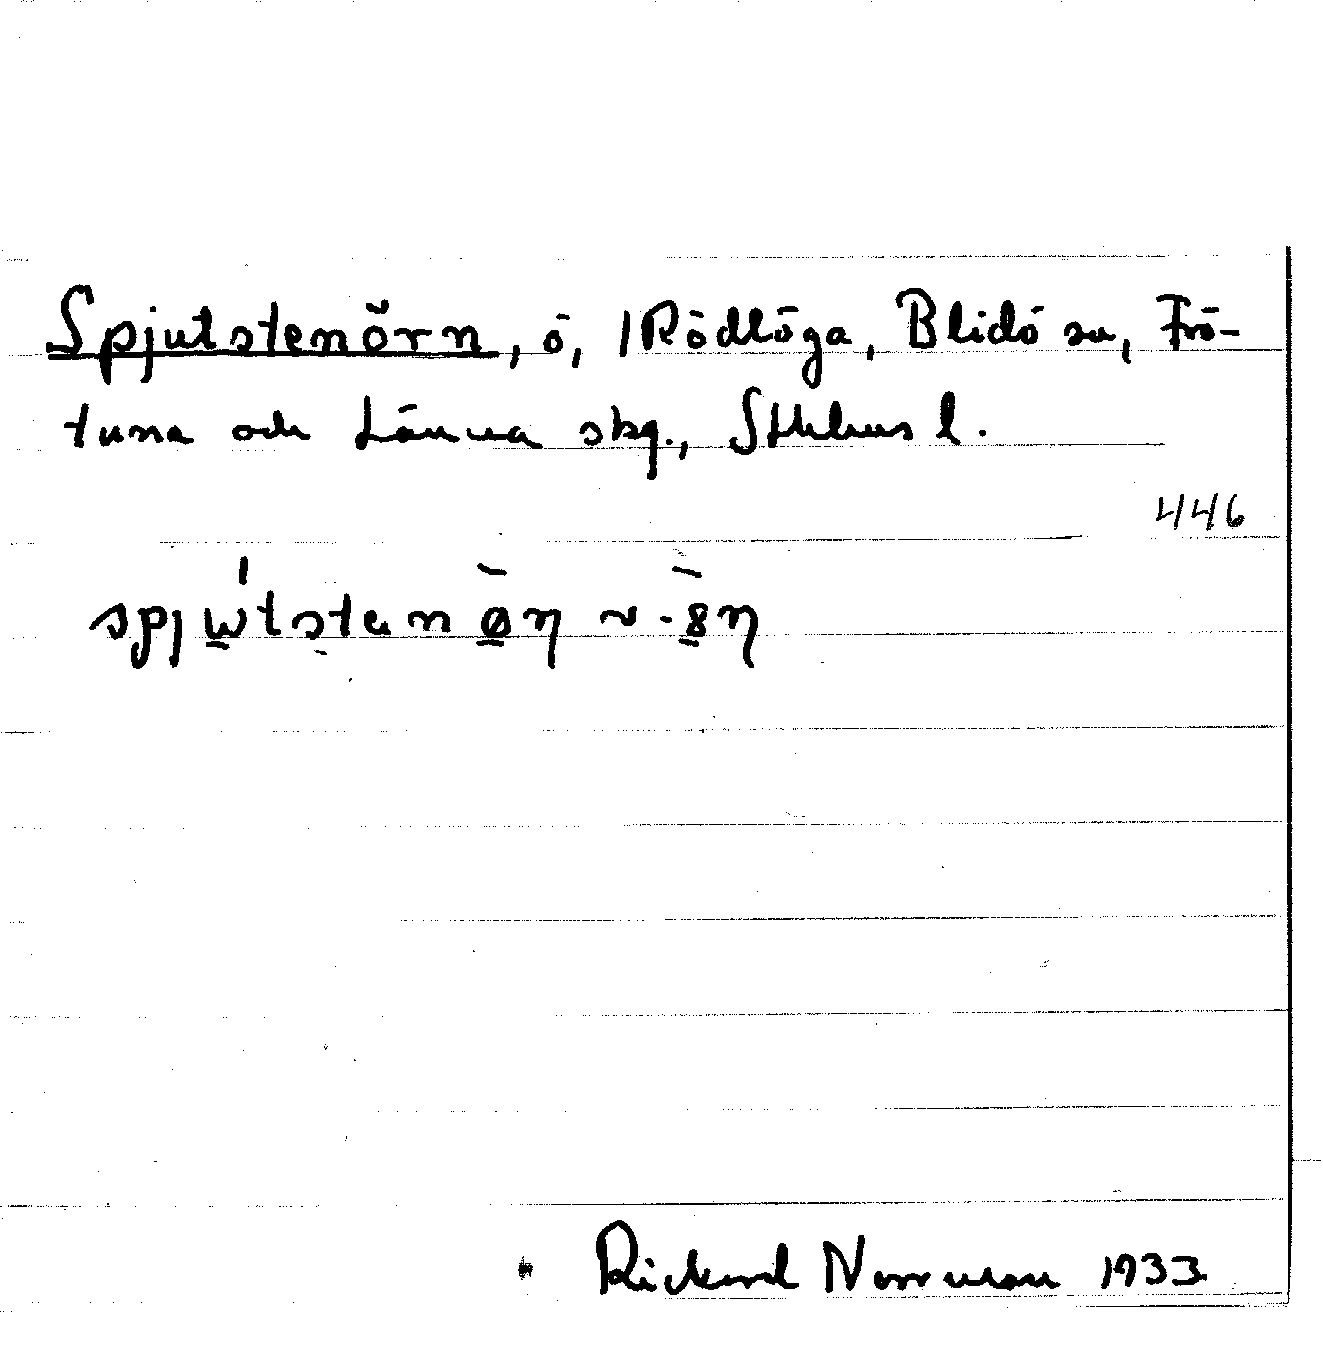 Spjutstenörn, ö, Rödlöga, Blidö sn, Frö-
tuna och Länna skg., Sthlms l.
446
spjɯ̲́tstenø̲̀ɳ ~ -8̲̀ɳ
Rickard Norrman 1933